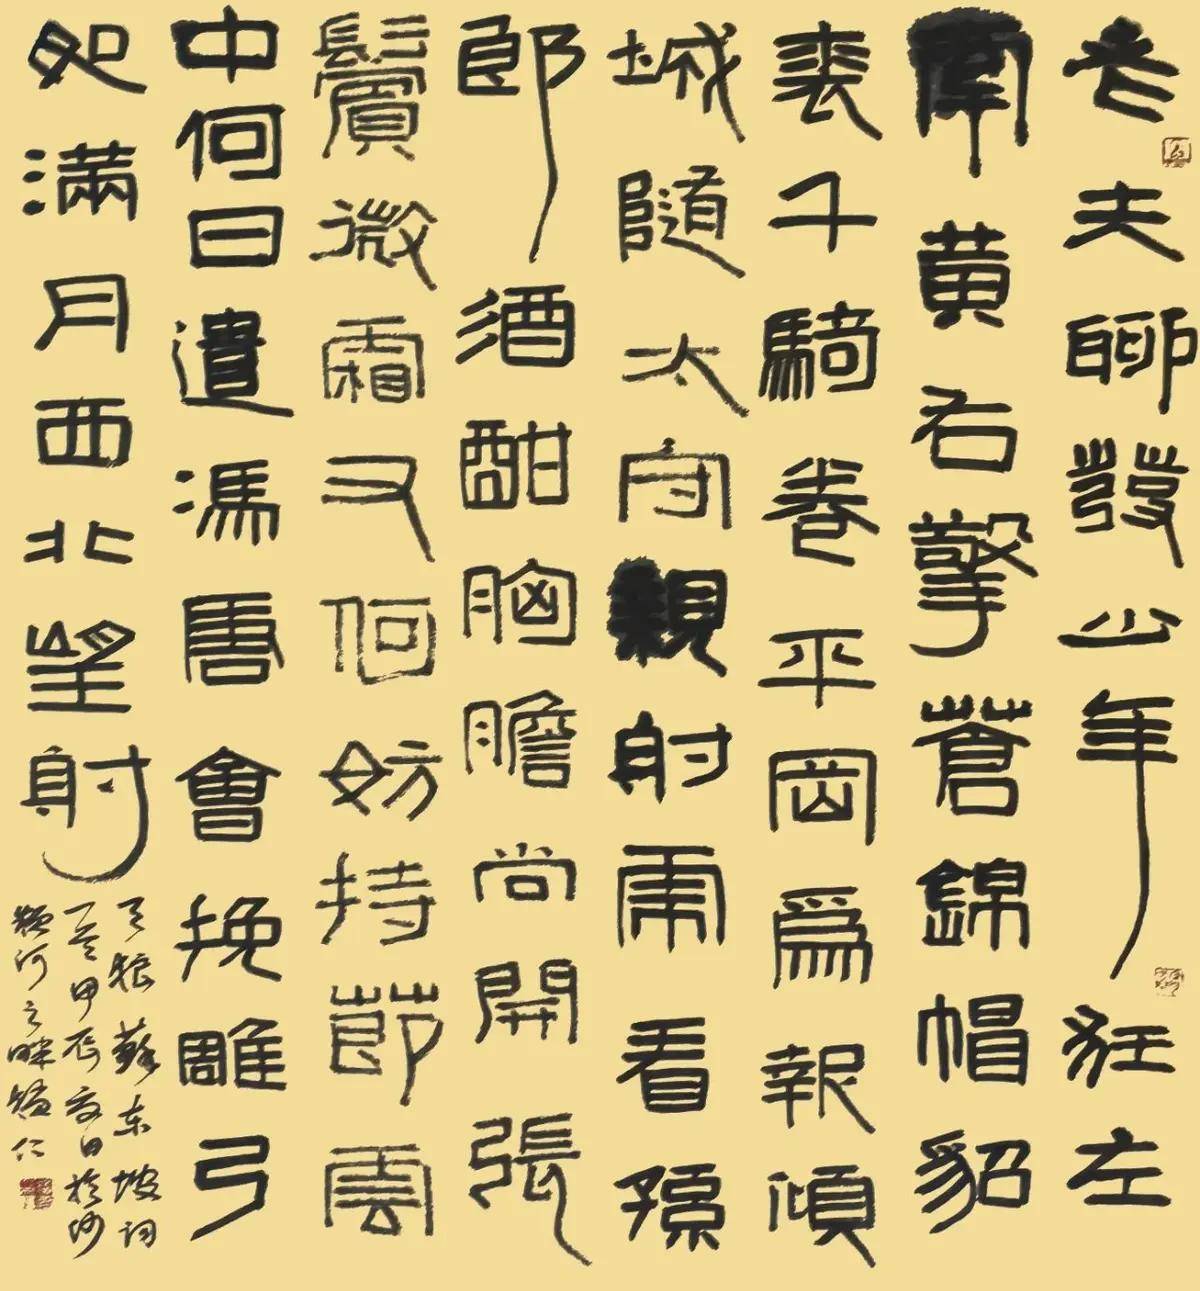 老夫聊發少年狂左
牽黃右擎蒼錦帽貂
裘千騎卷平岡爲報傾
城隨太守親射虎看孫
郎酒酣胸膽尚開張
鬢微霜又何妨持節雲
中何日遣馮唐會挽雕弓
如滿月西北望射
天狼 蘇东坡词
一首甲辰夏日於沙
潁河之畔